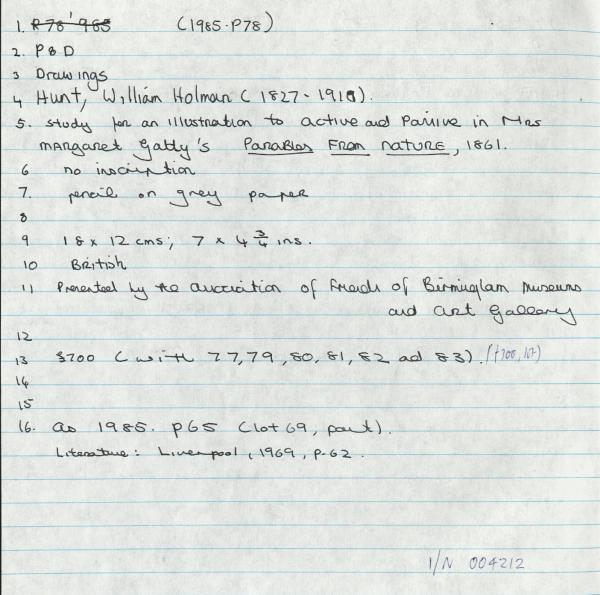 1. P78'985 (1985.P78)
2. P&D
3 Drawings
4 Hunt, William Holman (1827-1910).
5. study for an illustration to active and Passive in Mrs
Margaret Gatty's Parables From nature, 1861.
6 no inscription
7. pencil on grey paper
8
9 18 x 12 cms; 7 x 4 3/4 ins.
10 British
11 Presented by the association of Friends of Birmingham Museums
and Art Gallery
12
13 $700 (with 77, 79, 80, 81, 82 ad 83).
14
15
16. as 1985. P65 (lot 69, part).
Literature: Liverpool, 1969, p.62.
I/N 004212